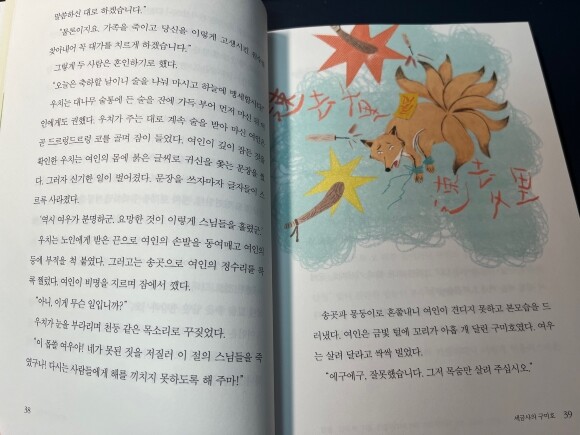 말씀하신 대로 하겠습니다."
"물론이지요. 가족을 죽이고 당신을 이렇게 고생시킨
찾아내어 꼭 대가를 치르게 하겠습니다."
그렇게 두 사람은 혼인하기로 했다.
"오늘은 축하할 날이니 술을 나눠 마시고 하늘에 맹세합시다."
우치는 대나무 술통에 든 술을 잔에 가득 부어 먼저 마신 뒤
인에게도 권했다. 우치가 주는 대로 계속 술을 받아 마신 여인은
곧 드르렁드르렁 코를 골며 잠이 들었다. 여인이 깊이 잠든 것을
확인한 우치는 여인의 몸에 붉은 글씨로 귀신을 쫓는 문장을
다. 그러자 신기한 일이 벌어졌다. 문장을 쓰자마자 글자들이 스
르륵 사라졌다.
'역시 여우가 분명하군. 요망한 것이 이렇게 스님들을 홀렸군.'
우치는 노인에게 받은 끈으로 여인의 손발을 동여매고 여인의
등에 부적을 척 붙였다. 그러고는 송곳으로 여인의 정수리를
푹 찔렀다. 여인이 비명을 지르며 잠에서 깼다.
"아니, 이게 무슨 일입니까?"
우치가 눈을 부라리며 천둥 같은 목소리로 꾸짖었다.
"이 몹쓸 여우야! 네가 못된 짓을 저질러 이 절의 스님들을 죽
였구나! 다시는 사람들에게 해를 끼치지 못하도록 해 주마!"
38
송곳과 몽둥이로 혼쭐내니 여인이 견디지 못하고 본모습을 드
러냈다. 여인은 금빛 털에 꼬리가 아홉 개 달린 구미호였다. 여우
는 살려 달라고 싹싹 빌었다.
"에구에구, 잘못했습니다. 그저 목숨만 살려 주십시오."
세금사의 구미호 39